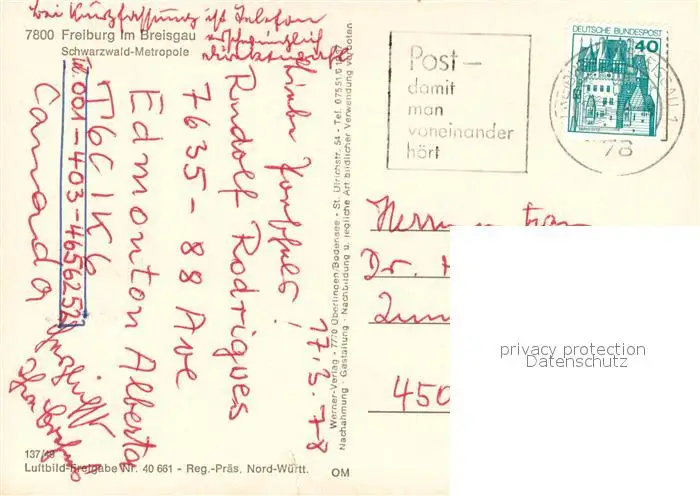 bei Kurzfassung ist Telefon
7800 Freiburg im Breisgau
Schwarzwald-Metropole
17.3.78
Rudolf Rodrigues
7635-88 Ave
Edmonton Alberta
T6C 1K6
Tel. 001-403-4656252
Canada
137/49
Luftbild-Freigabe Nr. 40 661 - Reg.-Präs. Nord-Württ.
OM
Werner-Verlag · 7770 Überlingen/Bodensee · St. Ulrichstr. 54 - Tel. 07551/
Nachahmung - Gestaltung - Nachbildung u. jegliche Art bildlicher Verwendung verboten
Post-
damit
man
voneinander
hört
DEUTSCHE BUNDESPOST
40
78
Herrn u. Frau
Dr.
450
privacy protection
Datenschutz